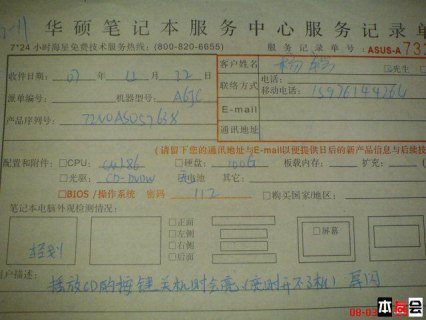 华硕笔记本服务中心服务记录单
7*24 小时海星免费技术服务热线：(800-820-6655)
服务记录单号：ASUS-A 73
收件日期：07 年 12 月 22 日
客户姓名：
□先生
派单编号：
机器型号：A6JC
联络方式
电话：
移动电话：
产品序列号：
E-mail
通讯地址
(请留下您的通讯地址与E-mail以便提供日后的新产品信息与后续技
配置和附件：
□CPU：
□硬盘：100G
板载内存：
扩充：
□光驱：
□电池
其它：
□BIOS /操作系统 密码 112
□购买国家/地区：
笔记本电脑外观检测情况：
轻划
□正面
□左侧
□右侧
□后面
□屏幕
用户描述：
播放CD的按键关机时会亮，(亮时开不了机) 屏闪
本友会
08-03